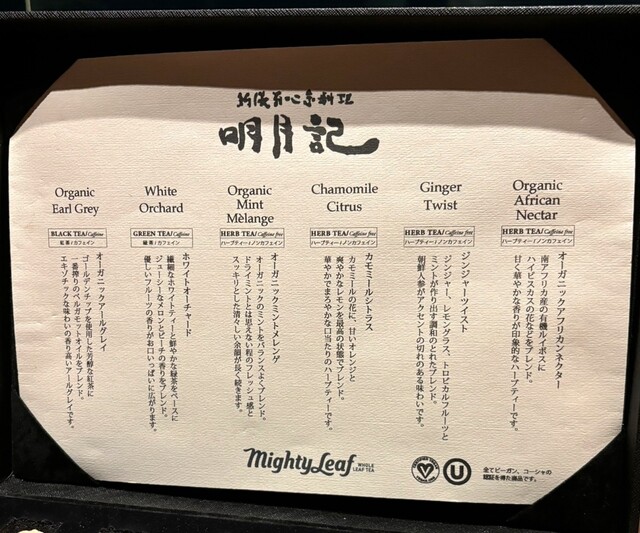 明月記
Organic
Earl Grey
BLACK TEA/Caffeine
紅茶/カフェイン
オーガニックアールグレイ
ゴールデンチップを使用した芳醇な紅茶に
一番搾りのベルガモットオイルをブレンド。
エキゾチックな味わいの香り高いアールグレイです。
White
Orchard
GREEN TEA/Caffeine
緑茶/カフェイン
ホワイトオーチャード
繊細なホワイトティーと鮮やかな緑茶をベースに
ジューシーなメロンとピーチの香りをブレンド。
優しいフルーツの香りがお口いっぱいに広がります。
Organic
Mint
Mèlange
HERB TEA/Caffeine free
ハーブティー/ノンカフェイン
オーガニックミントメレンゲ
オーガニックのミントをバランスよくブレンド。
ドライミントとは思えない程のフレッシュ感と
スッキリとした清々しい余韻が長く続きます。
Chamomile
Citrus
HERB TEA/Caffeine free
ハーブティー/ノンカフェイン
カモミールシトラス
カモミールの花に、甘いオレンジと
爽やかなレモンを最高の状態でブレンド。
華やかでまろやかな口当たりのハーブティーです。
Ginger
Twist
HERB TEA/Caffeine free
ハーブティー/ノンカフェイン
ジンジャーツイスト
ジンジャー、レモングラス、トロピカルフルーツと
ミントが作り出す調和のとれたブレンド。
朝鮮人参がアクセントの切れのある味わいです。
Organic
African
Nectar
HERB TEA/Caffeine free
ハーブティー/ノンカフェイン
オーガニックアフリカンネクター
南アフリカ産の有機ルイボスに
ハイビスカスの花などをブレンド。
甘く華やかな香りが印象的なハーブティーです。
Mighty Leaf WHOLE
LEAF TEA
V
U
全てビーガン、コーシャの
認証を得た商品です。